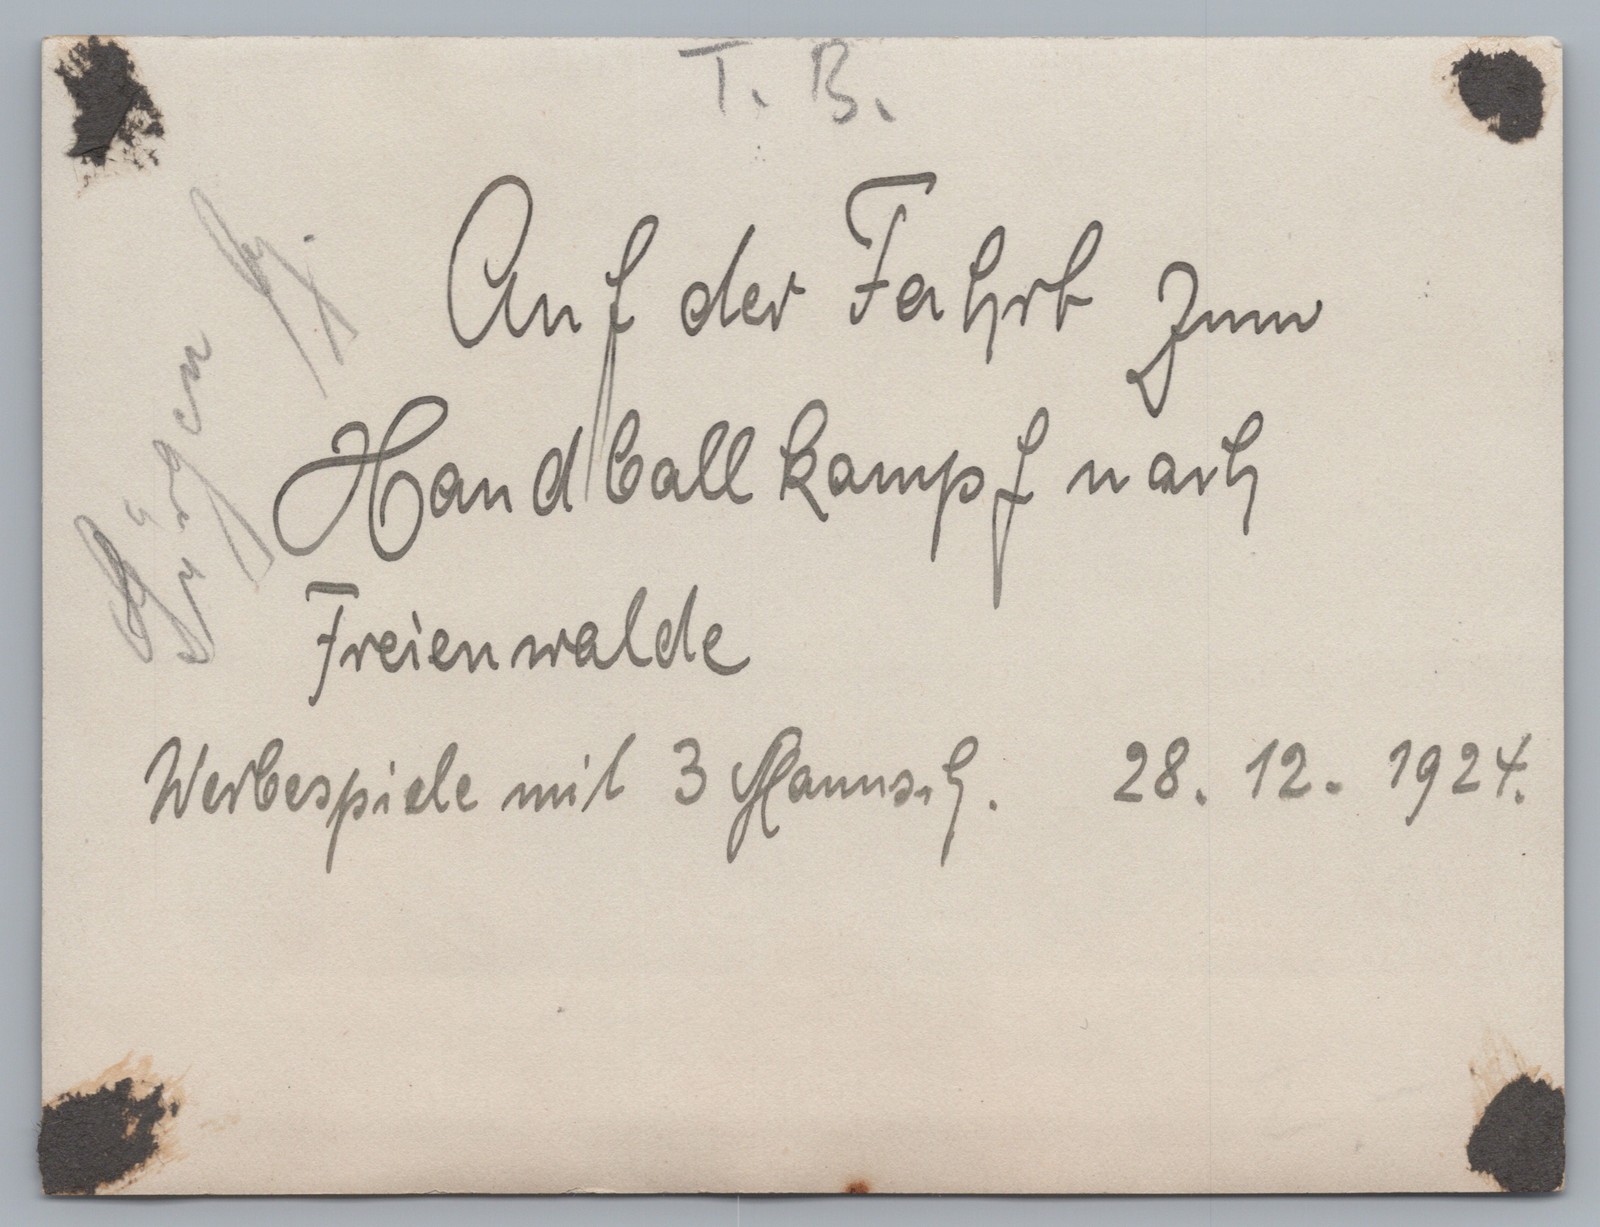 T. B.
Auf der Fahrt zum
Handballkampf nach
Freienwalde
Werbespiele mit 3 Mannsch. 28. 12. 1924.